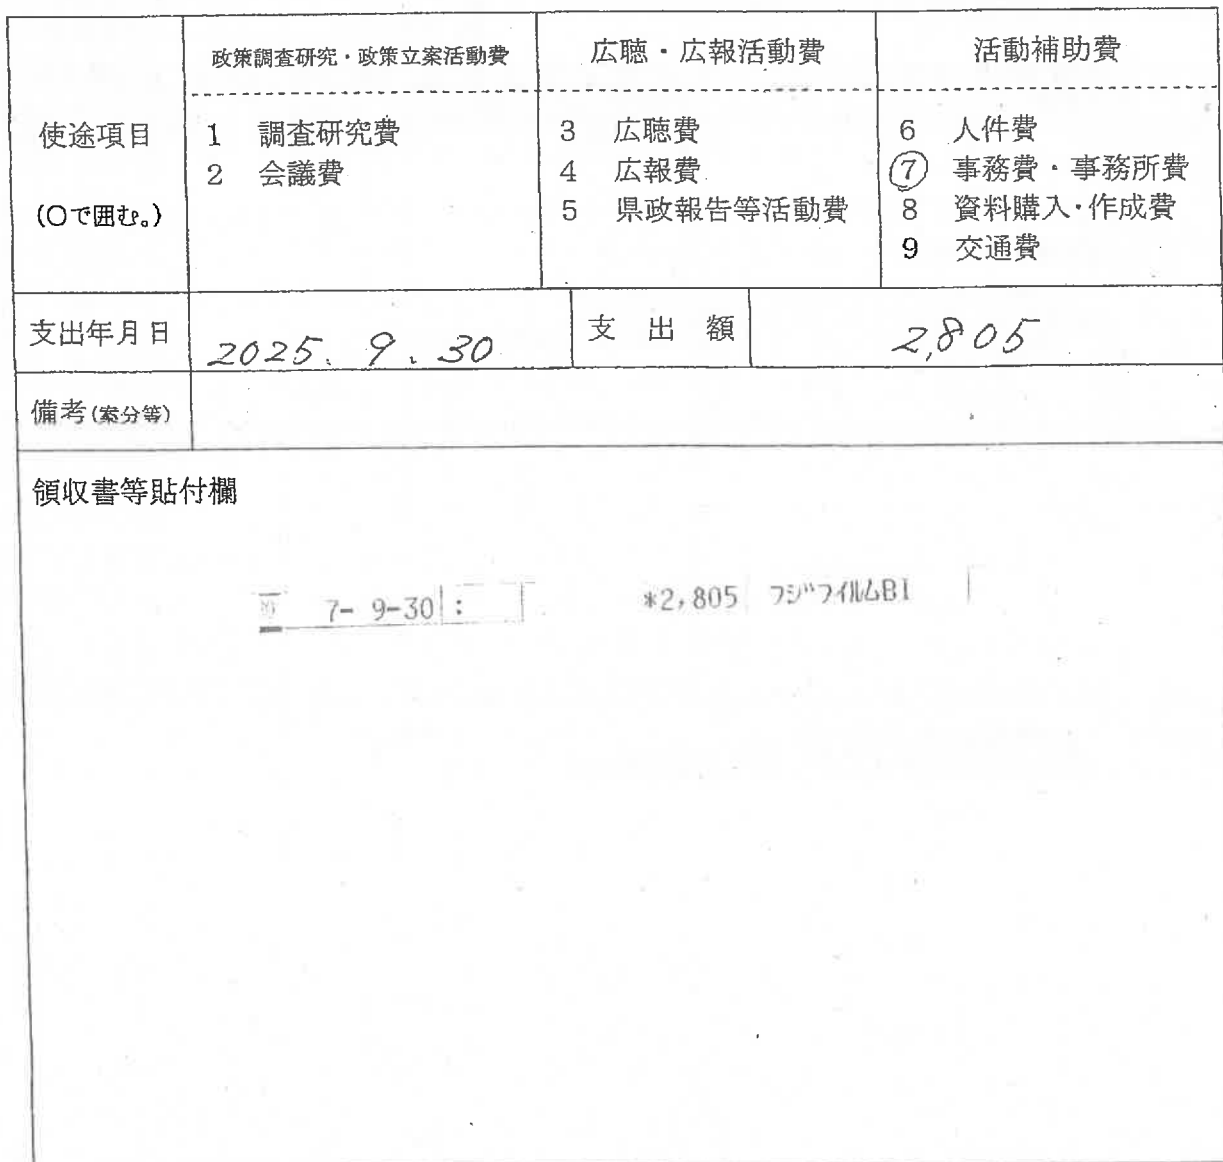 使途項目
(○で囲む。)
政策調査研究・政策立案活動費
1 調査研究費
2 会議費
広聴・広報活動費
3 広聴費
4 広報費
5 県政報告等活動費
活動補助費
6 人件費
⑦ 事務費・事務所費
8 資料購入・作成費
9 交通費
支出年月日 2025. 9. 30 支出額 2,805
備考(案分等)
領収書等貼付欄
7- 9-30 : *2,805 フジフイルムBI